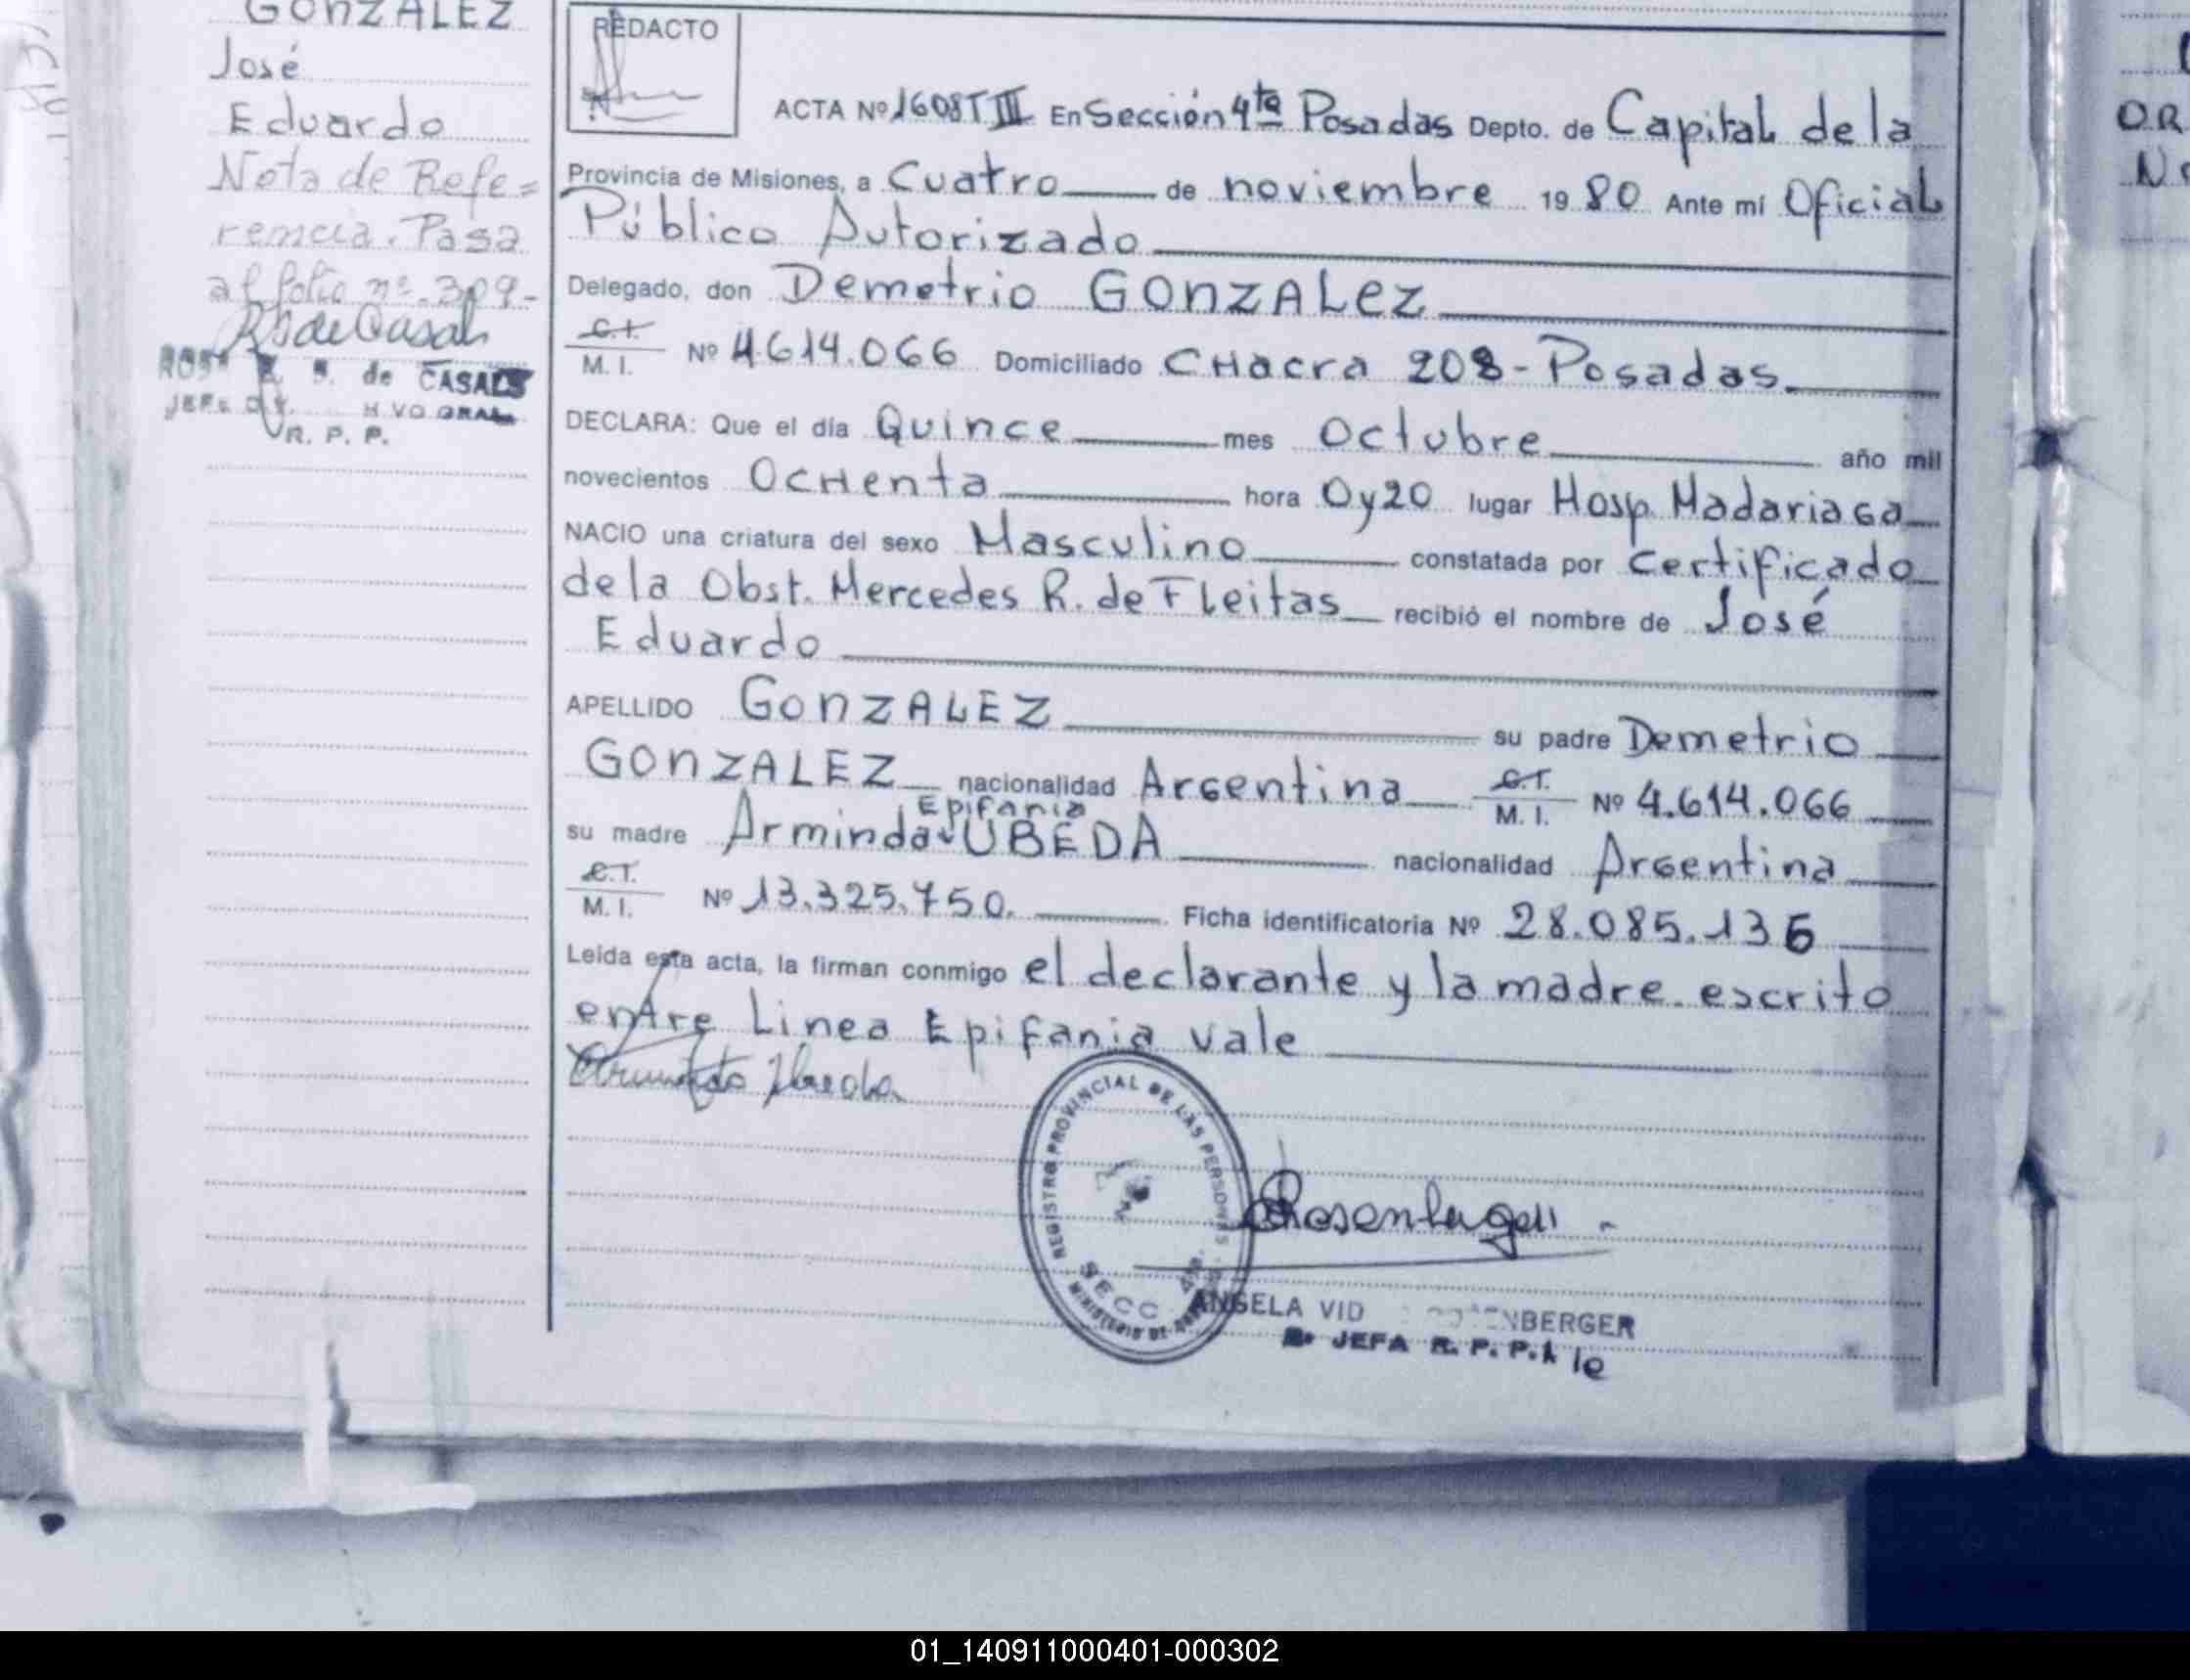 GONZALEZ
José
Eduardo
Nota de Refe=
rencia. Pasa
al folio nº. 309.-
R S de Casals
S. de CASALS
JEFE
R. P. P.
REDACTO
ACTA Nº 1608 T III En Sección 4ta Posadas Depto. de Capital de la
Provincia de Misiones, a Cuatro de noviembre 19 80 Ante mí Oficial
Público Autorizado
Delegado, don Demetrio GONZALEZ
C.I.
M. I. Nº 4.614.066 Domiciliado CHacra 208-Posadas
DECLARA: Que el día Quince mes Octubre año mil
novecientos OCHenta hora 0y20 lugar Hosp. Madariaga
NACIO una criatura del sexo Masculino constatada por Certificado
de la Obst. Mercedes R. de Fleitas recibió el nombre de José
Eduardo
APELLIDO GONZALEZ su padre Demetrio
GONZALEZ nacionalidad Argentina C.I. M. I. Nº 4.614.066
Epifania
su madre Arminda UBEDA nacionalidad Argentina
C.I.
M. I. Nº 13.325.750. Ficha identificatoria Nº 28.085.136
Leída esta acta, la firman conmigo el declarante y la madre. escrito
entre Linea Epifania vale
REGISTRO PROVINCIAL DE LAS PERSONAS
SECC 4ta.
MINISTERIO DE
ANGELA VID NBERGER
JEFA R. P. P.
OR
01_140911000401-000302